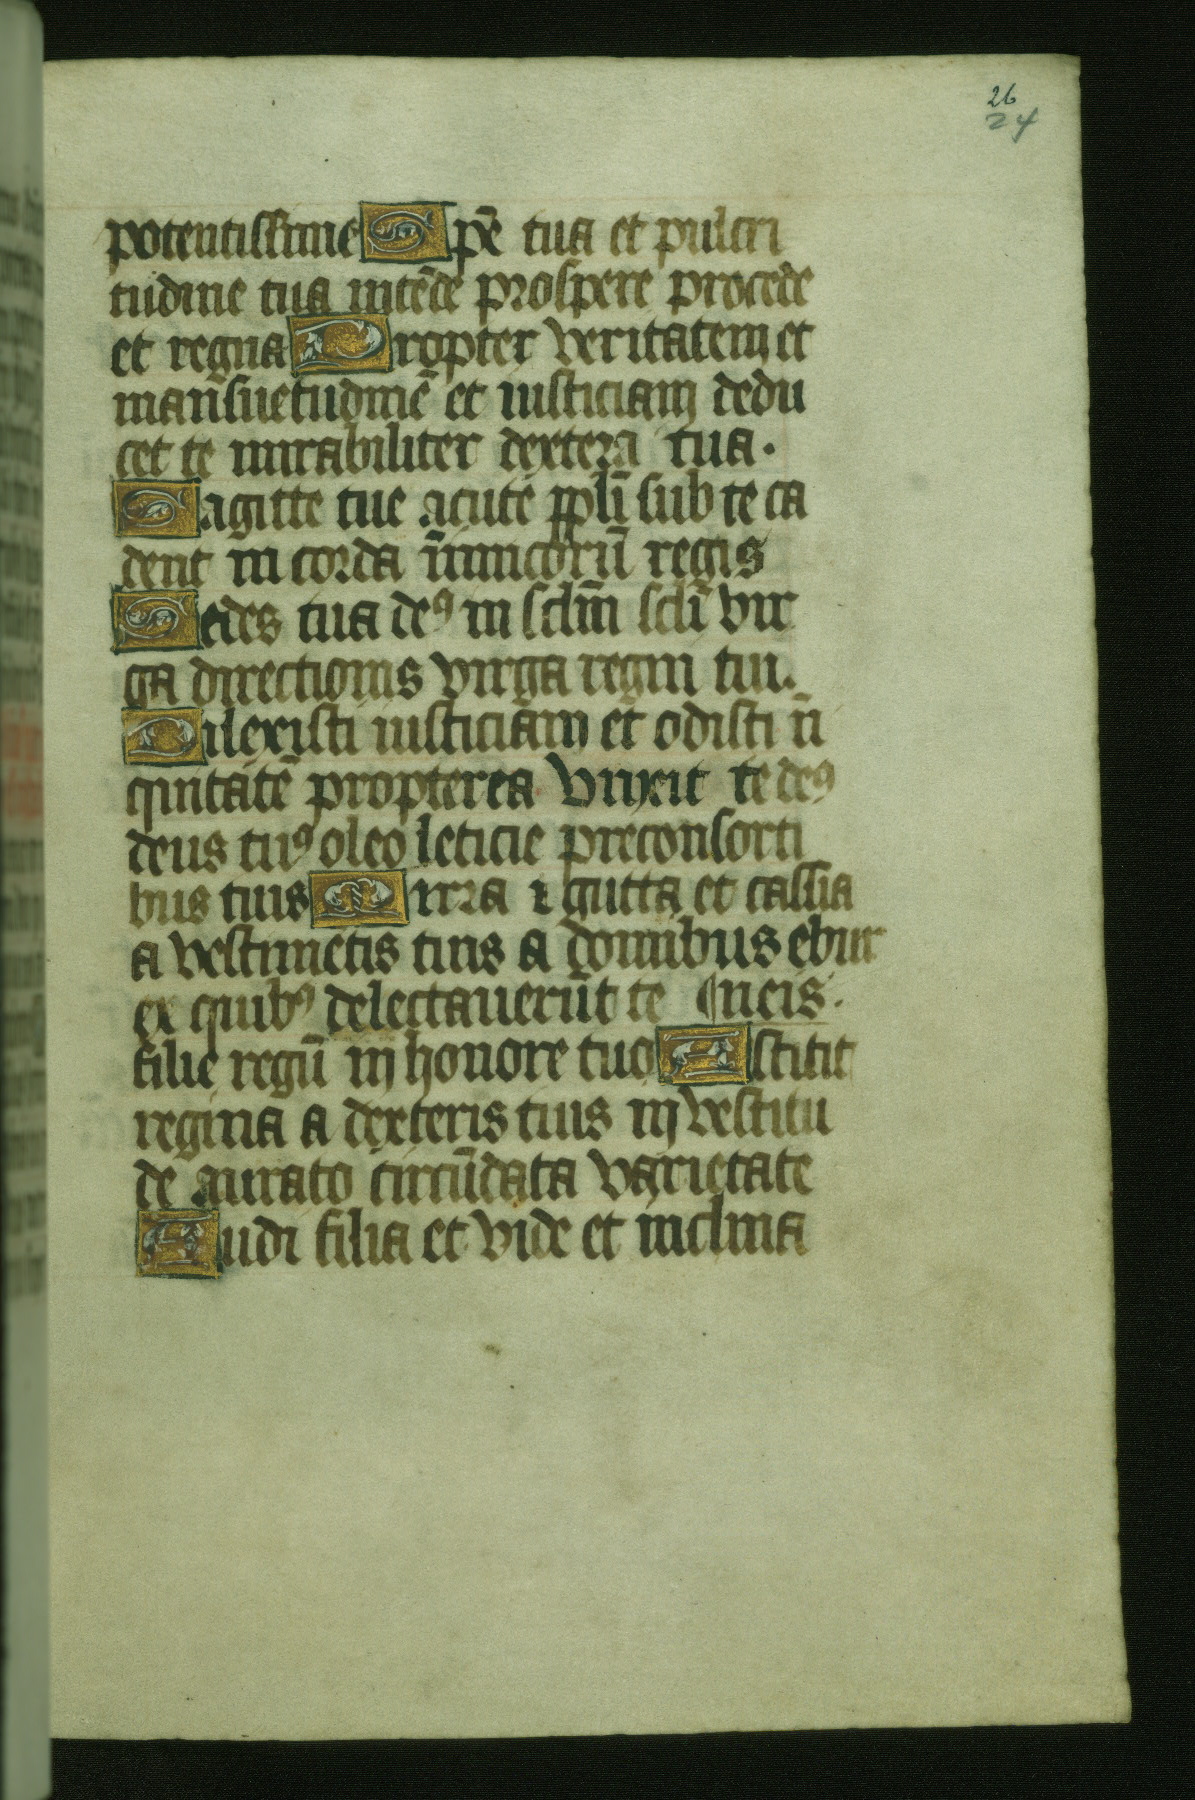 26
24
potentissime Spē tua et pulcri
tudine tua intēde prospere procede
et regna Propter veritatem et
man̄suetudinē et iusticiam dedu
cet te mirabiliter dextera tua.
Sagitte tue acute ppl̄i sub te ca
dent in corda īnimicorū regis
Sedes tua deꝰ in sclm̄ scl̄i vir
ga directionis virga regni tui.
Dilexisti iusticiam et odisti ī
quitatē propterea vnxit te deꝰ
deus tuꝰ oleo leticie preconsorti
bus tuis Mirra ⁊ gutta et cassia
a vestimētis tuis a domibus ebur
ex quibꝰ delectauerūt te neis.
filie regū in honore tuo Astitit
regina a dexteris tuis in vestitu
de aurato circūdata varietate
Audi filia et vide et inclina